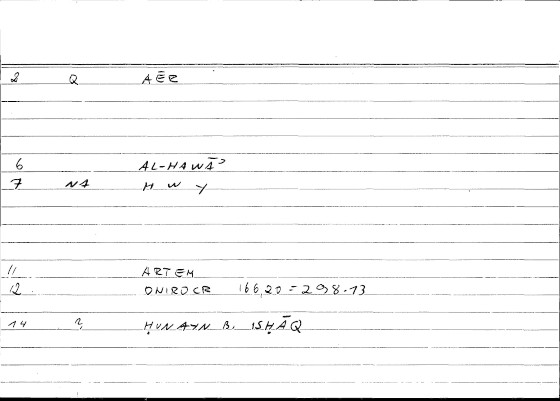 2 Q AĒR
6 AL-HAWĀʾ
7 NA H W Y
11 ARTEM
12 ONIROCR 166,20 = 298.13
14 2 ḤUNAYN B. ISḤĀQ